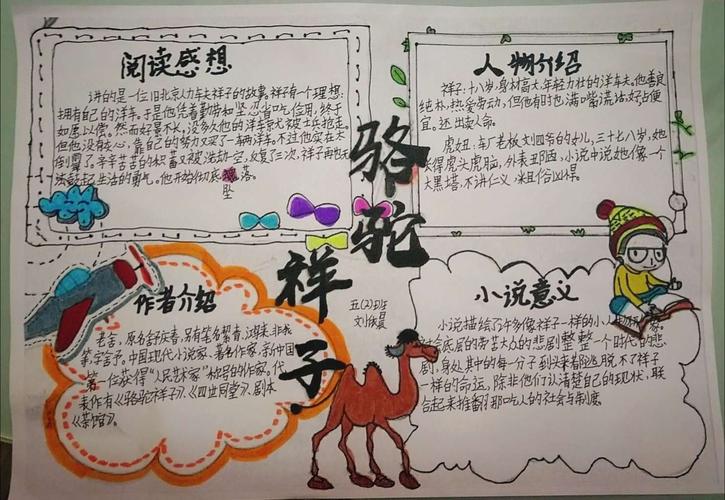 阅读感想
讲的是一位旧北京人力车夫祥子的故事。祥子有一个理想:
拥有自己的洋车。于是他凭着勤劳和坚忍,省吃俭用,终于
如愿以偿。然而好景不长,没多久他的洋车就被士兵抢走。
但他没有灰心,靠自己的努力又买了一辆洋车。不过他实在太
倒霉了,辛辛苦苦的积蓄又被洗劫一空,反复了三次,祥子再也无
法鼓起生活的勇气。他开始彻底 落
坠
人物介绍
祥子:十八岁,身材高大,年轻力壮的洋车夫。他善良
纯朴,热爱劳动,但他有时也满嘴流话,好占便
宜。还出卖人命。
虎妞:车厂老板刘四爷的女儿,三十七八岁,她
长得虎头虎脑,外表丑陋,小说中说她像一个
大黑塔,不讲仁义,粗俗凶悍。
骆驼
祥子
五(2)班
作者介绍
老舍,原名舒庆春,另有笔名絜青、鸿来、非我
等,字舍予。中国现代小说家、著名作家,新中国
第一位获得“人民艺术家”称号的作家。代
表作有《骆驼祥子》、《四世同堂》、剧本
《茶馆》。
小说意义
小说描绘了许多像祥子一样的小人物
社会底层的劳苦大众的悲剧,整整一个时代的悲
剧,身处其中的每一分子到头来脱逃不了祥子
一样的命运,除非他们认清楚自己的现状,联
合起来推翻那吃人的社会与制度。